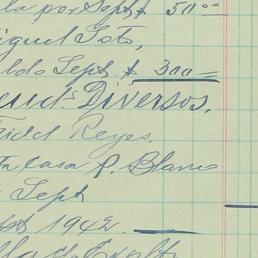 la por Sept. $ 50.00
iguel Soto,
eldo Sept. $ 300=
eud.s Diversos.
Fidel Reyes.
ta casa P. Blanco
Sept
1942.